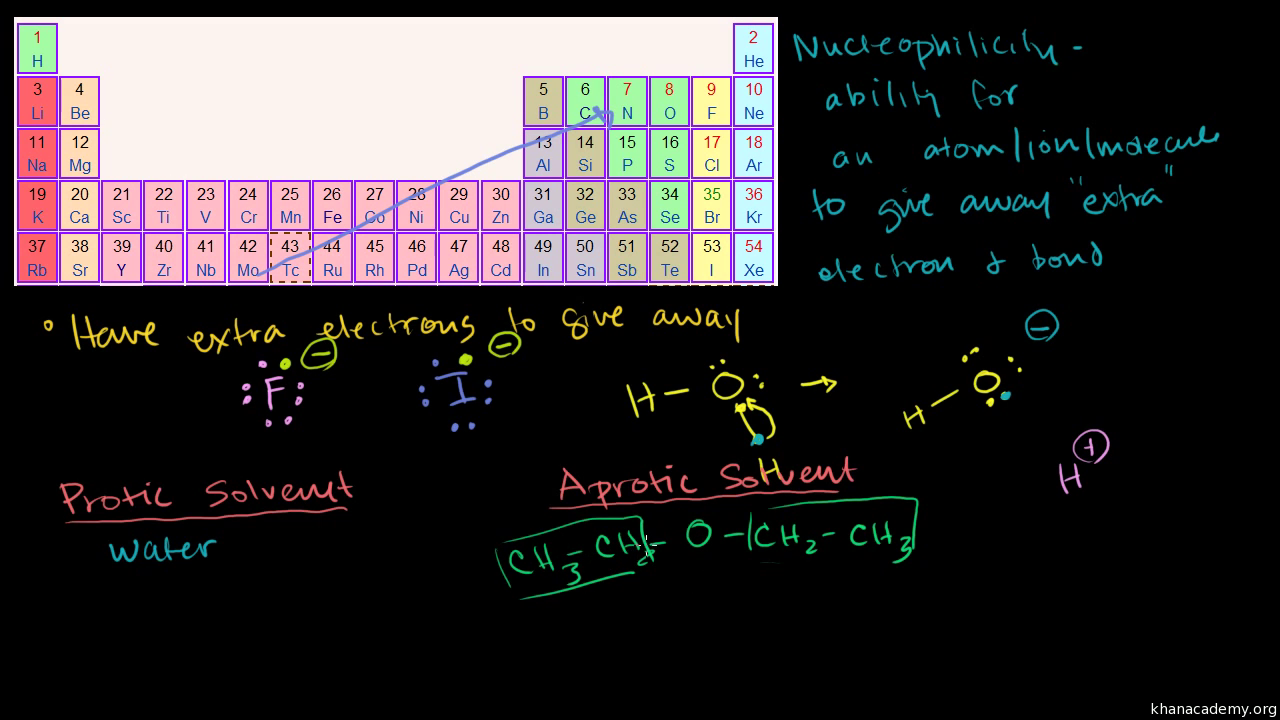 1 2
H He
3 4 5 6 7 8 9 10
Li Be B C N O F Ne
11 12 13 14 15 16 17 18
Na Mg Al Si P S Cl Ar
19 20 21 22 23 24 25 26 27 28 29 30 31 32 33 34 35 36
K Ca Sc Ti V Cr Mn Fe Co Ni Cu Zn Ga Ge As Se Br Kr
37 38 39 40 41 42 43 44 45 46 47 48 49 50 51 52 53 54
Rb Sr Y Zr Nb Mo Tc Ru Rh Pd Ag Cd In Sn Sb Te I Xe
Nucleophilicity -
ability for
an atom/ion/molecule
to give away "extra"
electron & bond
• Have extra electrons to give away
:F: − :I: − H - O: → H - O: −
H H +
Protic Solvent Aprotic Solvent
water CH3 - CH2 - O - CH2 - CH3
khanacademy.org